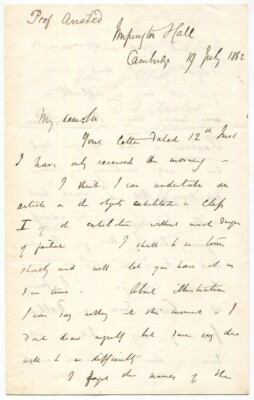 Prof. Ansted
Impington Hall
Cambridge 19 July 1862
My dear Sir
Your letter dated 12th Inst
I have only received this morning –
I think I can undertake an
article on the objects exhibited in Class
I of the exhibition without much danger
of failure I shall be in town
shortly and will let you have it in
due time. About illustration
I can say nothing at this moment – I
don't draw myself but dare say there
will be no difficulty
I forget the names of the